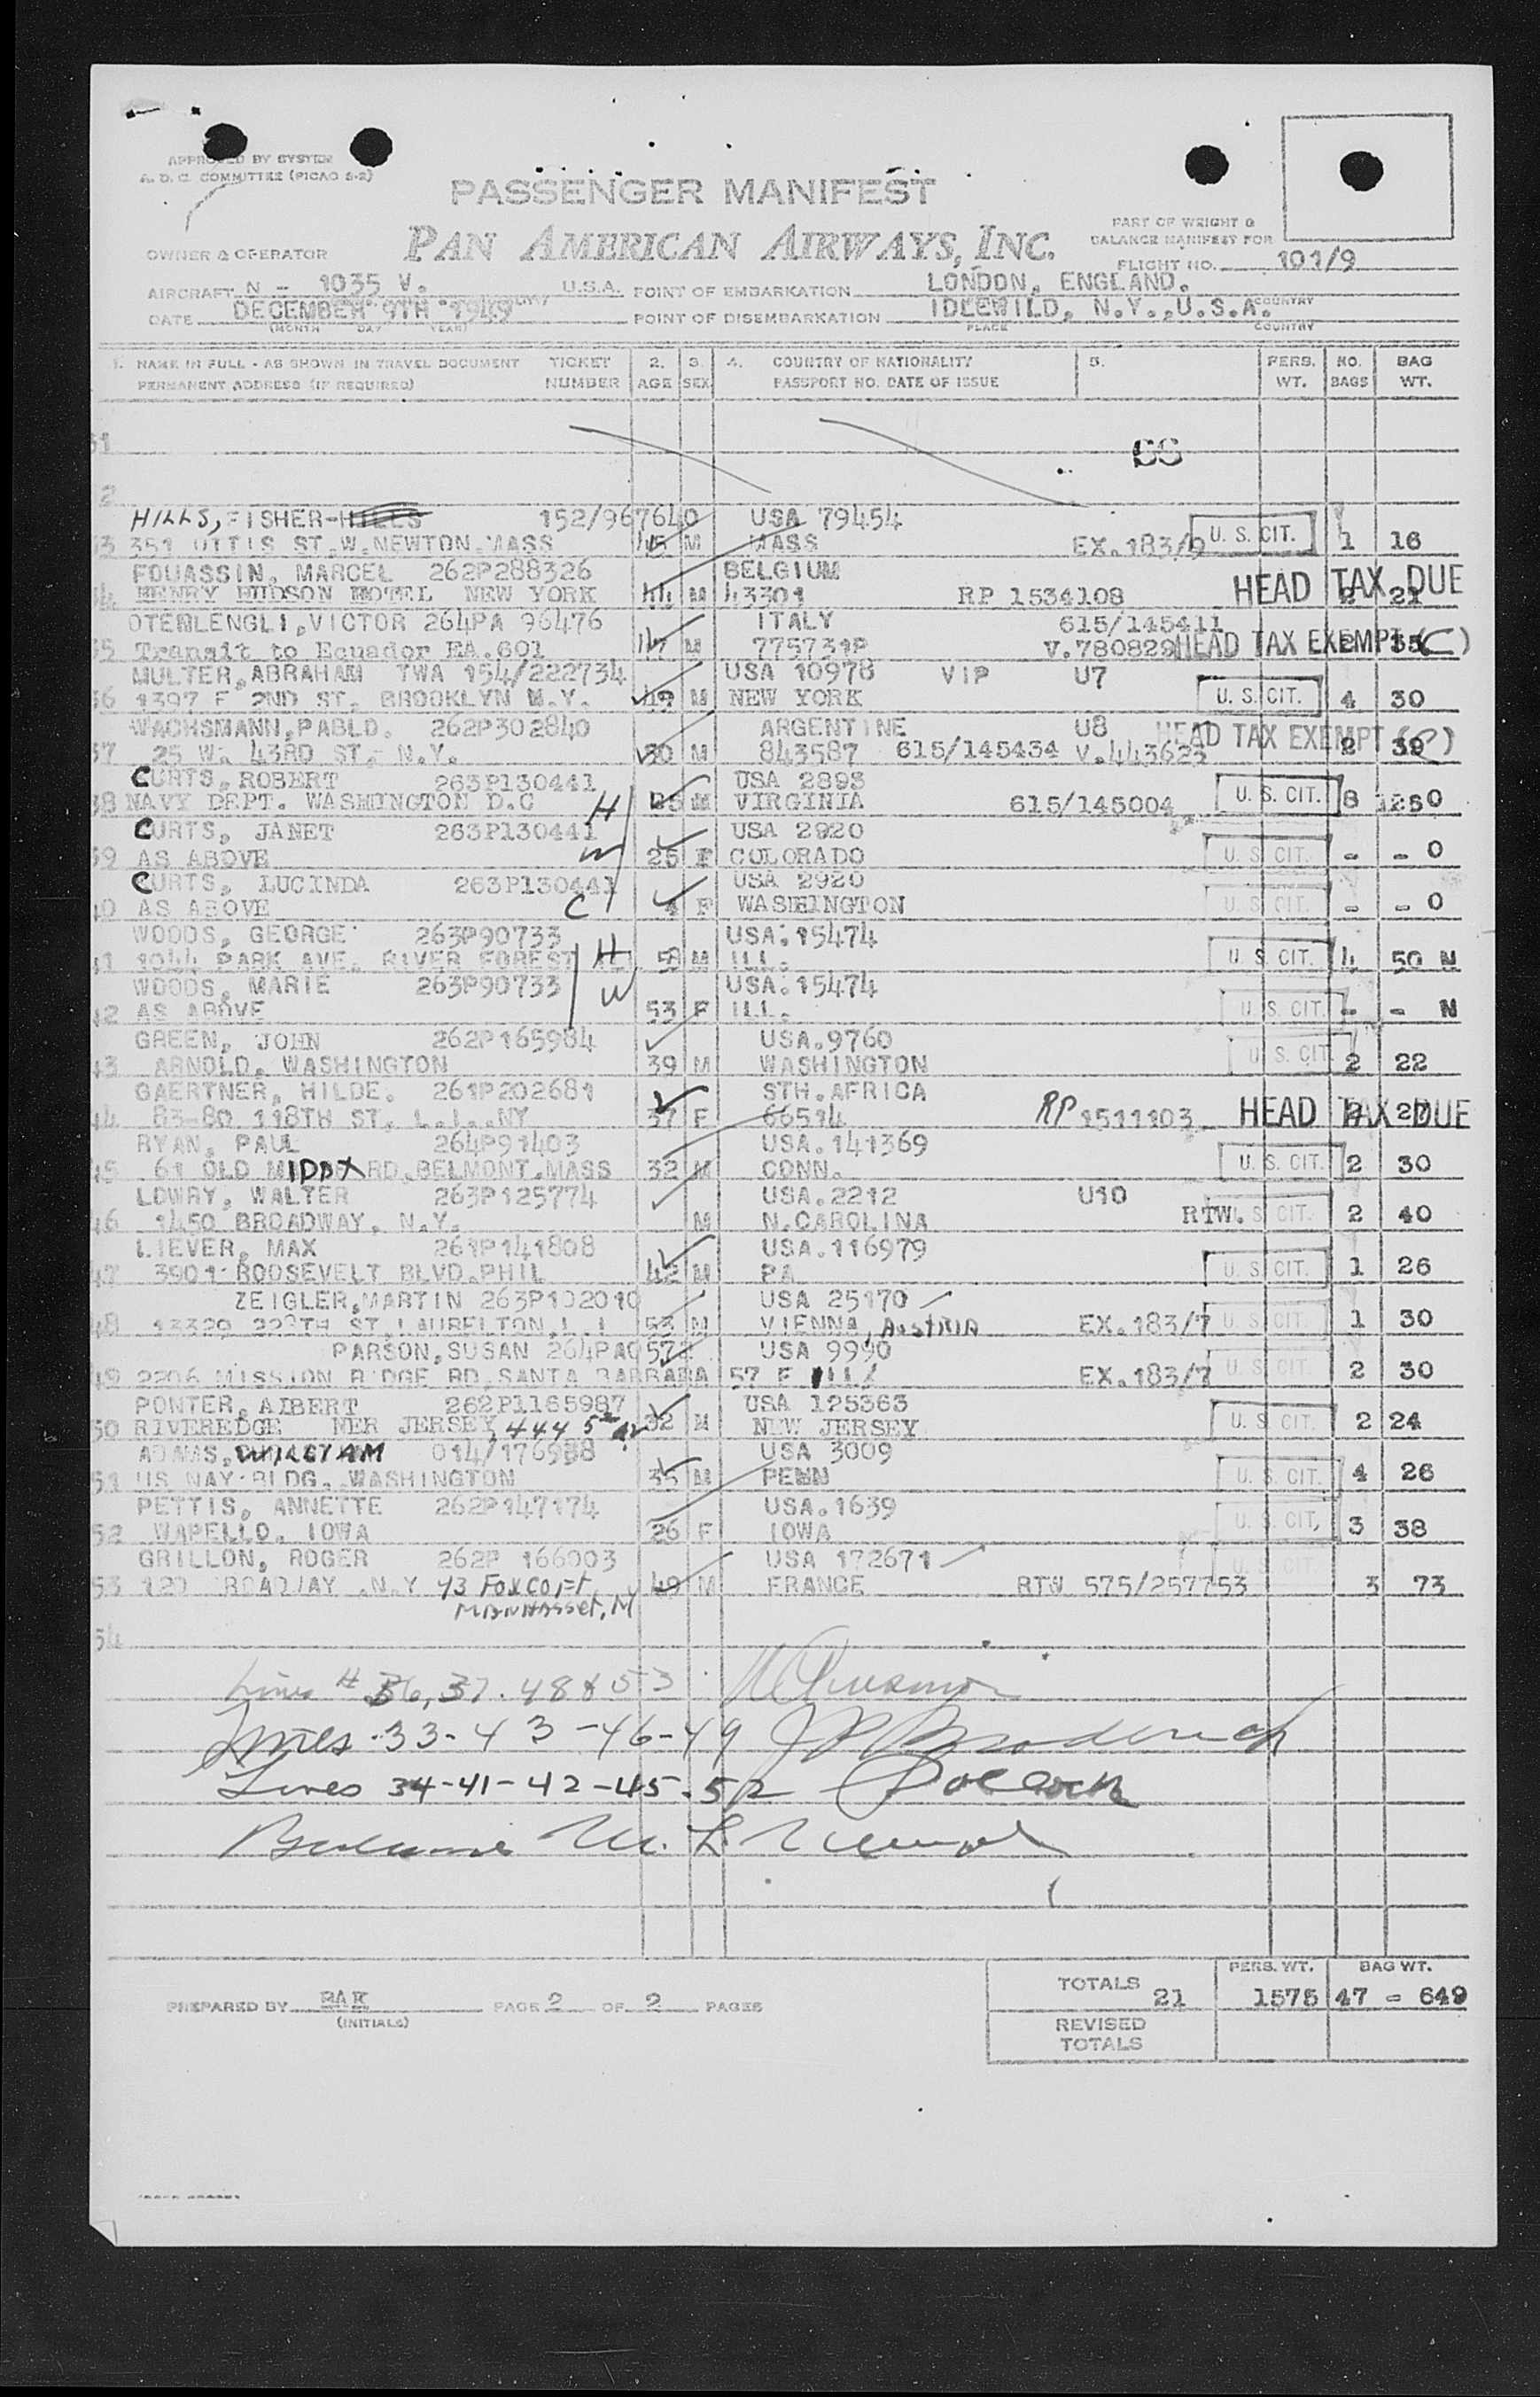 APPROVED BY SYSTEM
A. D. C. COMMITTEE (PICAO S-2)
PASSENGER MANIFEST
PART OF WEIGHT &
BALANCE MANIFEST FOR
OWNER & OPERATOR PAN AMERICAN AIRWAYS, INC.
FLIGHT NO. 101/9
AIRCRAFT N - 1035 V. U.S.A. POINT OF EMBARKATION LONDON, ENGLAND.
DATE DECEMBER 9TH 1949 POINT OF DISEMBARKATION IDLEWILD, N.Y.,U.S.A.
(MONTH DAY YEAR) PLACE COUNTRY
1. NAME IN FULL - AS SHOWN IN TRAVEL DOCUMENT TICKET 2. 3. 4. COUNTRY OF NATIONALITY 5. PERS. NO. BAG
PERMANENT ADDRESS (IF REQUIRED) NUMBER AGE SEX PASSPORT NO. DATE OF ISSUE WT. BAGS WT.
HILLS, FISHER-HILLS 152/967640 USA 79454
351 OTTIS ST.W.NEWTON.MASS 45 M MASS EX.183/9 U. S. CIT. 1 16
FOUASSIN, MARCEL 262P288326 BELGIUM
HENRY HUDSON HOTEL NEW YORK 44 M 43301 RP 1534108 HEAD TAX DUE 2 21
OTEMLENGLI,VICTOR 264PA 96476 ITALY 615/145411
35 Transit to Ecuador EA.601 47 M 775731P V.780829 HEAD TAX EXEMPT (C) 2 35
MULTER,ABRAHAM TWA 154/222734 USA 10978 VIP U7
36 1397 E 2ND ST. BROOKLYN N.Y. 49 M NEW YORK U. S. CIT. 4 30
WACHSMANN,PABLO. 262P302840 ARGENTINE U8
37 25 W. 43RD ST. N.Y. 30 M 843587 615/145434 V.443623 HEAD TAX EXEMPT (C) 2 39
CURTS, ROBERT 263P130441 USA 2893
38 NAVY DEPT. WASHINGTON D.C H 25 M VIRGINIA 615/145004 U. S. CIT. 8 1280
CURTS, JANET 263P130441 USA 2920
39 AS ABOVE W 25 F COLORADO U. S. CIT. - - 0
CURTS, LUCINDA 263P130441 USA 2920
40 AS ABOVE C 4 F WASHINGTON U. S. CIT. - - 0
WOODS, GEORGE 263P90733 USA.15474
41 1044 PARK AVE. RIVER FOREST H 58 M ILL. U. S. CIT. 4 50 N
WOODS, MARIE 263P90733 USA.15474
42 AS ABOVE W 53 F ILL. U. S. CIT. - - N
GREEN, JOHN 262P165984 USA.9760
43 ARNOLD. WASHINGTON 39 M WASHINGTON U. S. CIT. 2 22
GAERTNER, HILDE. 261P202681 STH.AFRICA
44 83-80 118TH ST. L.I..NY 37 F 66514 RP 1511103 HEAD TAX DUE 2 27
RYAN, PAUL 264P91403 USA.141369
45 61 OLD MIDDX RD.BELMONT.MASS 32 M CONN. U. S. CIT. 2 30
LOWRY, WALTER 263P125774 USA.2212 U10
46 1450 BROADWAY. N.Y. M N.CAROLINA RTW. U. S. CIT. 2 40
LIEVER, MAX 261P141808 USA.116979
47 3901 ROOSEVELT BLVD.PHIL 42 M PA U. S. CIT. 1 26
ZEIGLER,MARTIN 263P102010 USA 25170
48 13329 228TH ST,LAURELTON,L I 53 M VIENNA, Austria EX.183/7 U. S. CIT. 1 30
PARSON,SUSAN 264PA0572 USA 9990
49 2206 MISSION RIDGE RD.SANTA BARBARA 57 F ILL EX.183/7 U. S. CIT. 2 30
PONTER, ALBERT 262P1165987 USA 125363
50 RIVEREDGE NER JERSEY, 444 5th av 32 M NEW JERSEY U. S. CIT. 2 24
ADAMS, WILLIAM 014/176988 USA 3009
51 US NAY BLDG. WASHINGTON 35 M PENN U. S. CIT. 4 26
PETTIS, ANNETTE 262P147174 USA.1639
52 WAPELLO. IOWA 26 F IOWA U. S. CIT. 3 38
GRILLON, ROGER 262P 166003 USA 172671
53 120 BROADWAY .N.Y 43 Foxcoft, 49 M FRANCE RTW 575/257753 U. S. CIT. 3 73
Manhasset, N
54
Lines # 36, 37. 48 & 53
Lines 33-43-46-49
Lines 34-41-42-45-52
Balance
TOTALS 21 PERS. WT. 1575 BAG WT. 47 - 649
PREPARED BY (INITIALS) PAGE 2 OF 2 PAGES
REVISED TOTALS